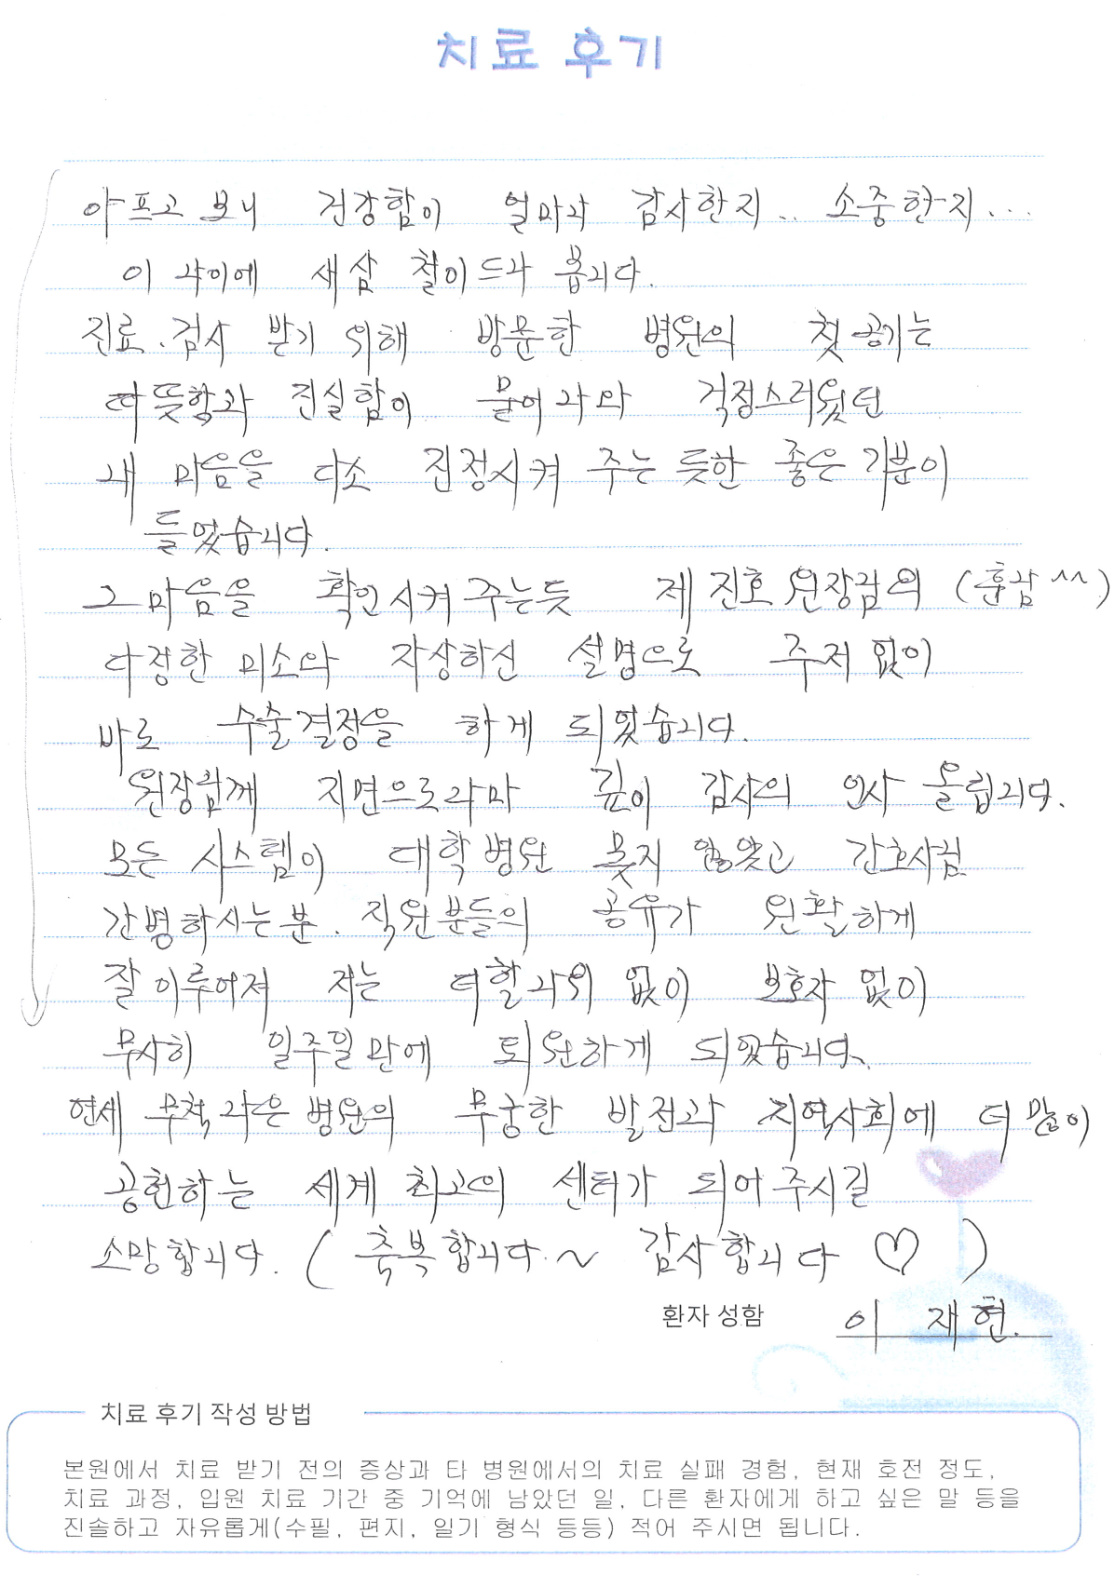 치료 후기
아프고 보니 건강함이 얼마나 감사한지.. 소중한지...
이 나이에 새삼 철이 드나 봅니다.
진료.검사 받기 위해 방문한 병원의 첫 공기는
따뜻함과 진실함이 묻어나와 걱정스러웠던
내 마음을 다소 진정시켜 주는 듯한 좋은 기분이
들었습니다.
그 마음을 확인시켜 주는듯 제진호 원장님의 (훈남^^)
다정한 미소와 자상하신 설명으로 주저 없이
바로 수술결정을 하게 되었습니다.
원장님께 지면으로나마 깊이 감사의 인사 올립니다.
모든 시스템이 대학병원 못지 않았고 간호사님
간병하시는분. 직원분들의 공유가 원활하게
잘 이루어져 저는 더할나위 없이 보호자 없이
무사히 일주일만에 퇴원하게 되었습니다.
연세 무척 나은 병원의 무궁한 발전과 지역사회에 더 많이
공헌하는 세계 최고의 센터가 되어 주시길
소망합니다. ( 축복합니다.~ 감사합니다 ♡ )
환자 성함 이 재현.
치료 후기 작성 방법
본원에서 치료 받기 전의 증상과 타 병원에서의 치료 실패 경험, 현재 호전 정도,
치료 과정, 입원 치료 기간 중 기억에 남았던 일, 다른 환자에게 하고 싶은 말 등을
진솔하고 자유롭게(수필, 편지, 일기 형식 등등) 적어 주시면 됩니다.